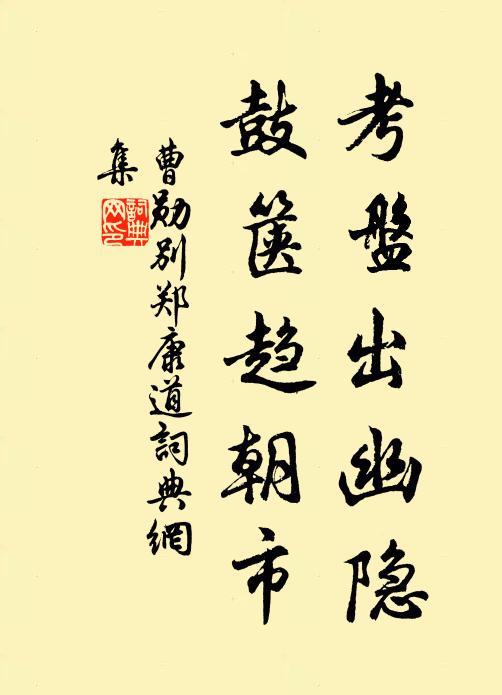 考盤出幽隐
鼓箧趋朝市
曹勋别郑康道詞典網
集
詞典
网印